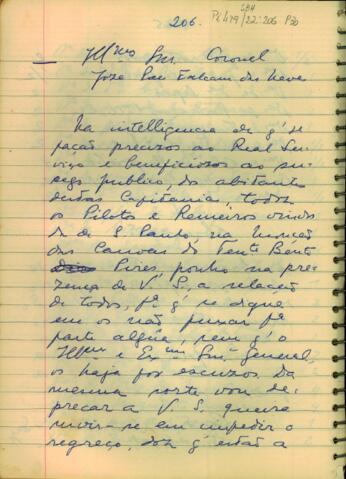 206.
SBH
Pi 419 / 22:206 P30
Illmo Snr. Coronel
José Paes Falcam das Neves
Na intelligencia de q' se
façaõ precizos ao Real Ser-
viço e beneficiozos ao su-
cego publico, dos abitantes
destas Capitania, todos
os Pilotos e Remeiros vindos
de S. Paulo, na Monçaõ
das Canoas do Tente Bento
Pires, ponho na pre-
zença de V. S., a relaçaõ
de todos, pa q' se digne
em os naõ puxar pa
parte algũa, sem q' o
Illmo e Exmo Snr. General,
os haja por escuzos. Da
mesma sorte vou de-
precar a V. S. queira
servir-se em impedir o
regreço, dos q' estaõ a